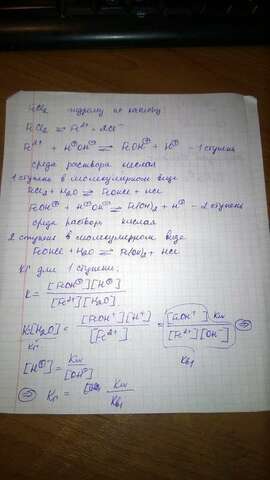 FeCl₂ гидролиз по катиону
FeCl₂ ⇌ Fe²⁺ + 2Cl⁻
Fe²⁺ + H⁺OH⁻ ⇌ FeOH⁺ + H⁺ - 1 ступень
среда раствора кислая
1 ступень в молекулярном виде
FeCl₂ + H₂O ⇌ FeOHCl + HCl
FeOH⁺ + H⁺OH⁻ ⇌ Fe(OH)₂ + H⁺ - 2 ступень
среда раствора кислая
2 ступень в молекулярном виде
FeOHCl + H₂O ⇌ Fe(OH)₂ + HCl
Кг для 1 ступени:
K = [FeOH⁺][H⁺] / [Fe²⁺][H₂O]
K[H₂O] = [FeOH⁺][H⁺] / [Fe²⁺] = [FeOH⁺] Kw / [Fe²⁺][OH⁻] ⇒
Кг
Kb₁
[H⁺] = Kw / [OH⁻]
⇒ Кг = Kw / Kb₁